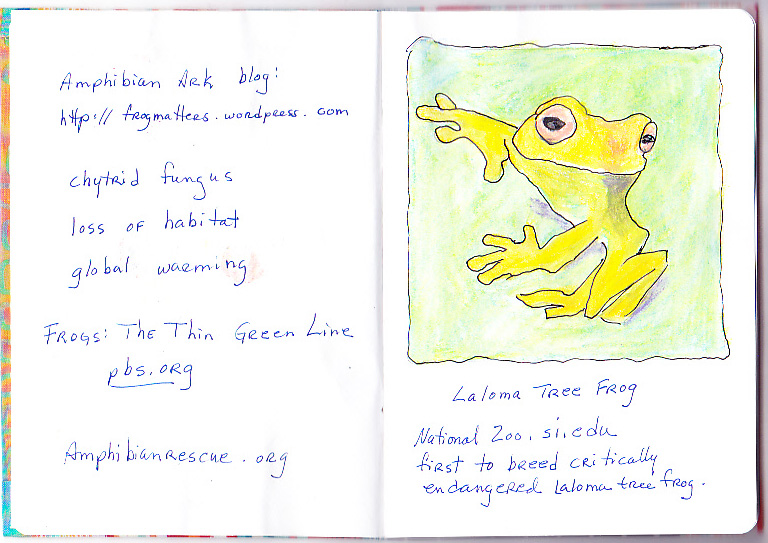 Amphibian Ark blog:
http:// frogmatters.wordpress.com
chytrid fungus
loss of habitat
global warming
Frogs: The Thin Green Line
pbs.org
Amphibianrescue.org
Laloma Tree Frog
National Zoo.si.edu
first to breed critically
endangered Laloma tree frog.